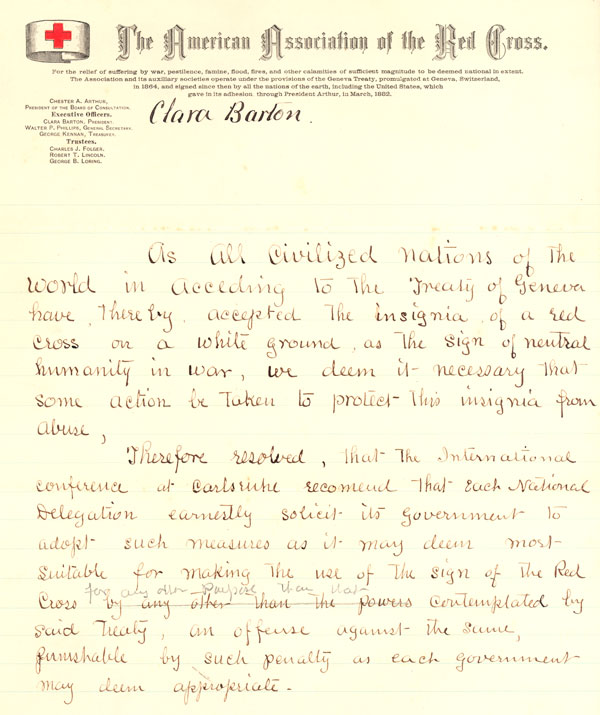 The American Association of the Red Cross.
For the relief of suffering by war, pestilence, famine, flood, fires, and other calamities of sufficient magnitude to be deemed national in extent.
The Association and its auxiliary societies operate under the provisions of the Geneva Treaty, promulgated at Geneva, Switzerland,
in 1864, and signed since then by all the nations of the earth, including the United States, which
gave in its adhesion through President Arthur, in March, 1882.
CHESTER A. ARTHUR,
PRESIDENT OF THE BOARD OF CONSULTATION.
Executive Officers.
CLARA BARTON, PRESIDENT.
WALTER P. PHILLIPS, GENERAL SECRETARY.
GEORGE KENNAN, TREASURER.
Trustees.
CHARLES J. FOLGER.
ROBERT T. LINCOLN.
GEORGE B. LORING.
Clara Barton.
As all civilized nations of the
world in acceding to the Treaty of Geneva
have, thereby, accepted the insignia, of a red
cross on a white ground, as the sign of neutral
humanity in war, we deem it necessary that
some action be taken to protect this insignia from
abuse,
Therefore resolved, that the International
conference at Carlsruhe recomend that each National
Delegation earnestly solicit its government to
adopt such measures as it may deem most
suitable for making the use of the sign of the Red
for any other purpose than that
Cross by any other than the powers contemplated by
said Treaty, an offense against the same,
punishable by such penalty as each government
may deem appropriate.